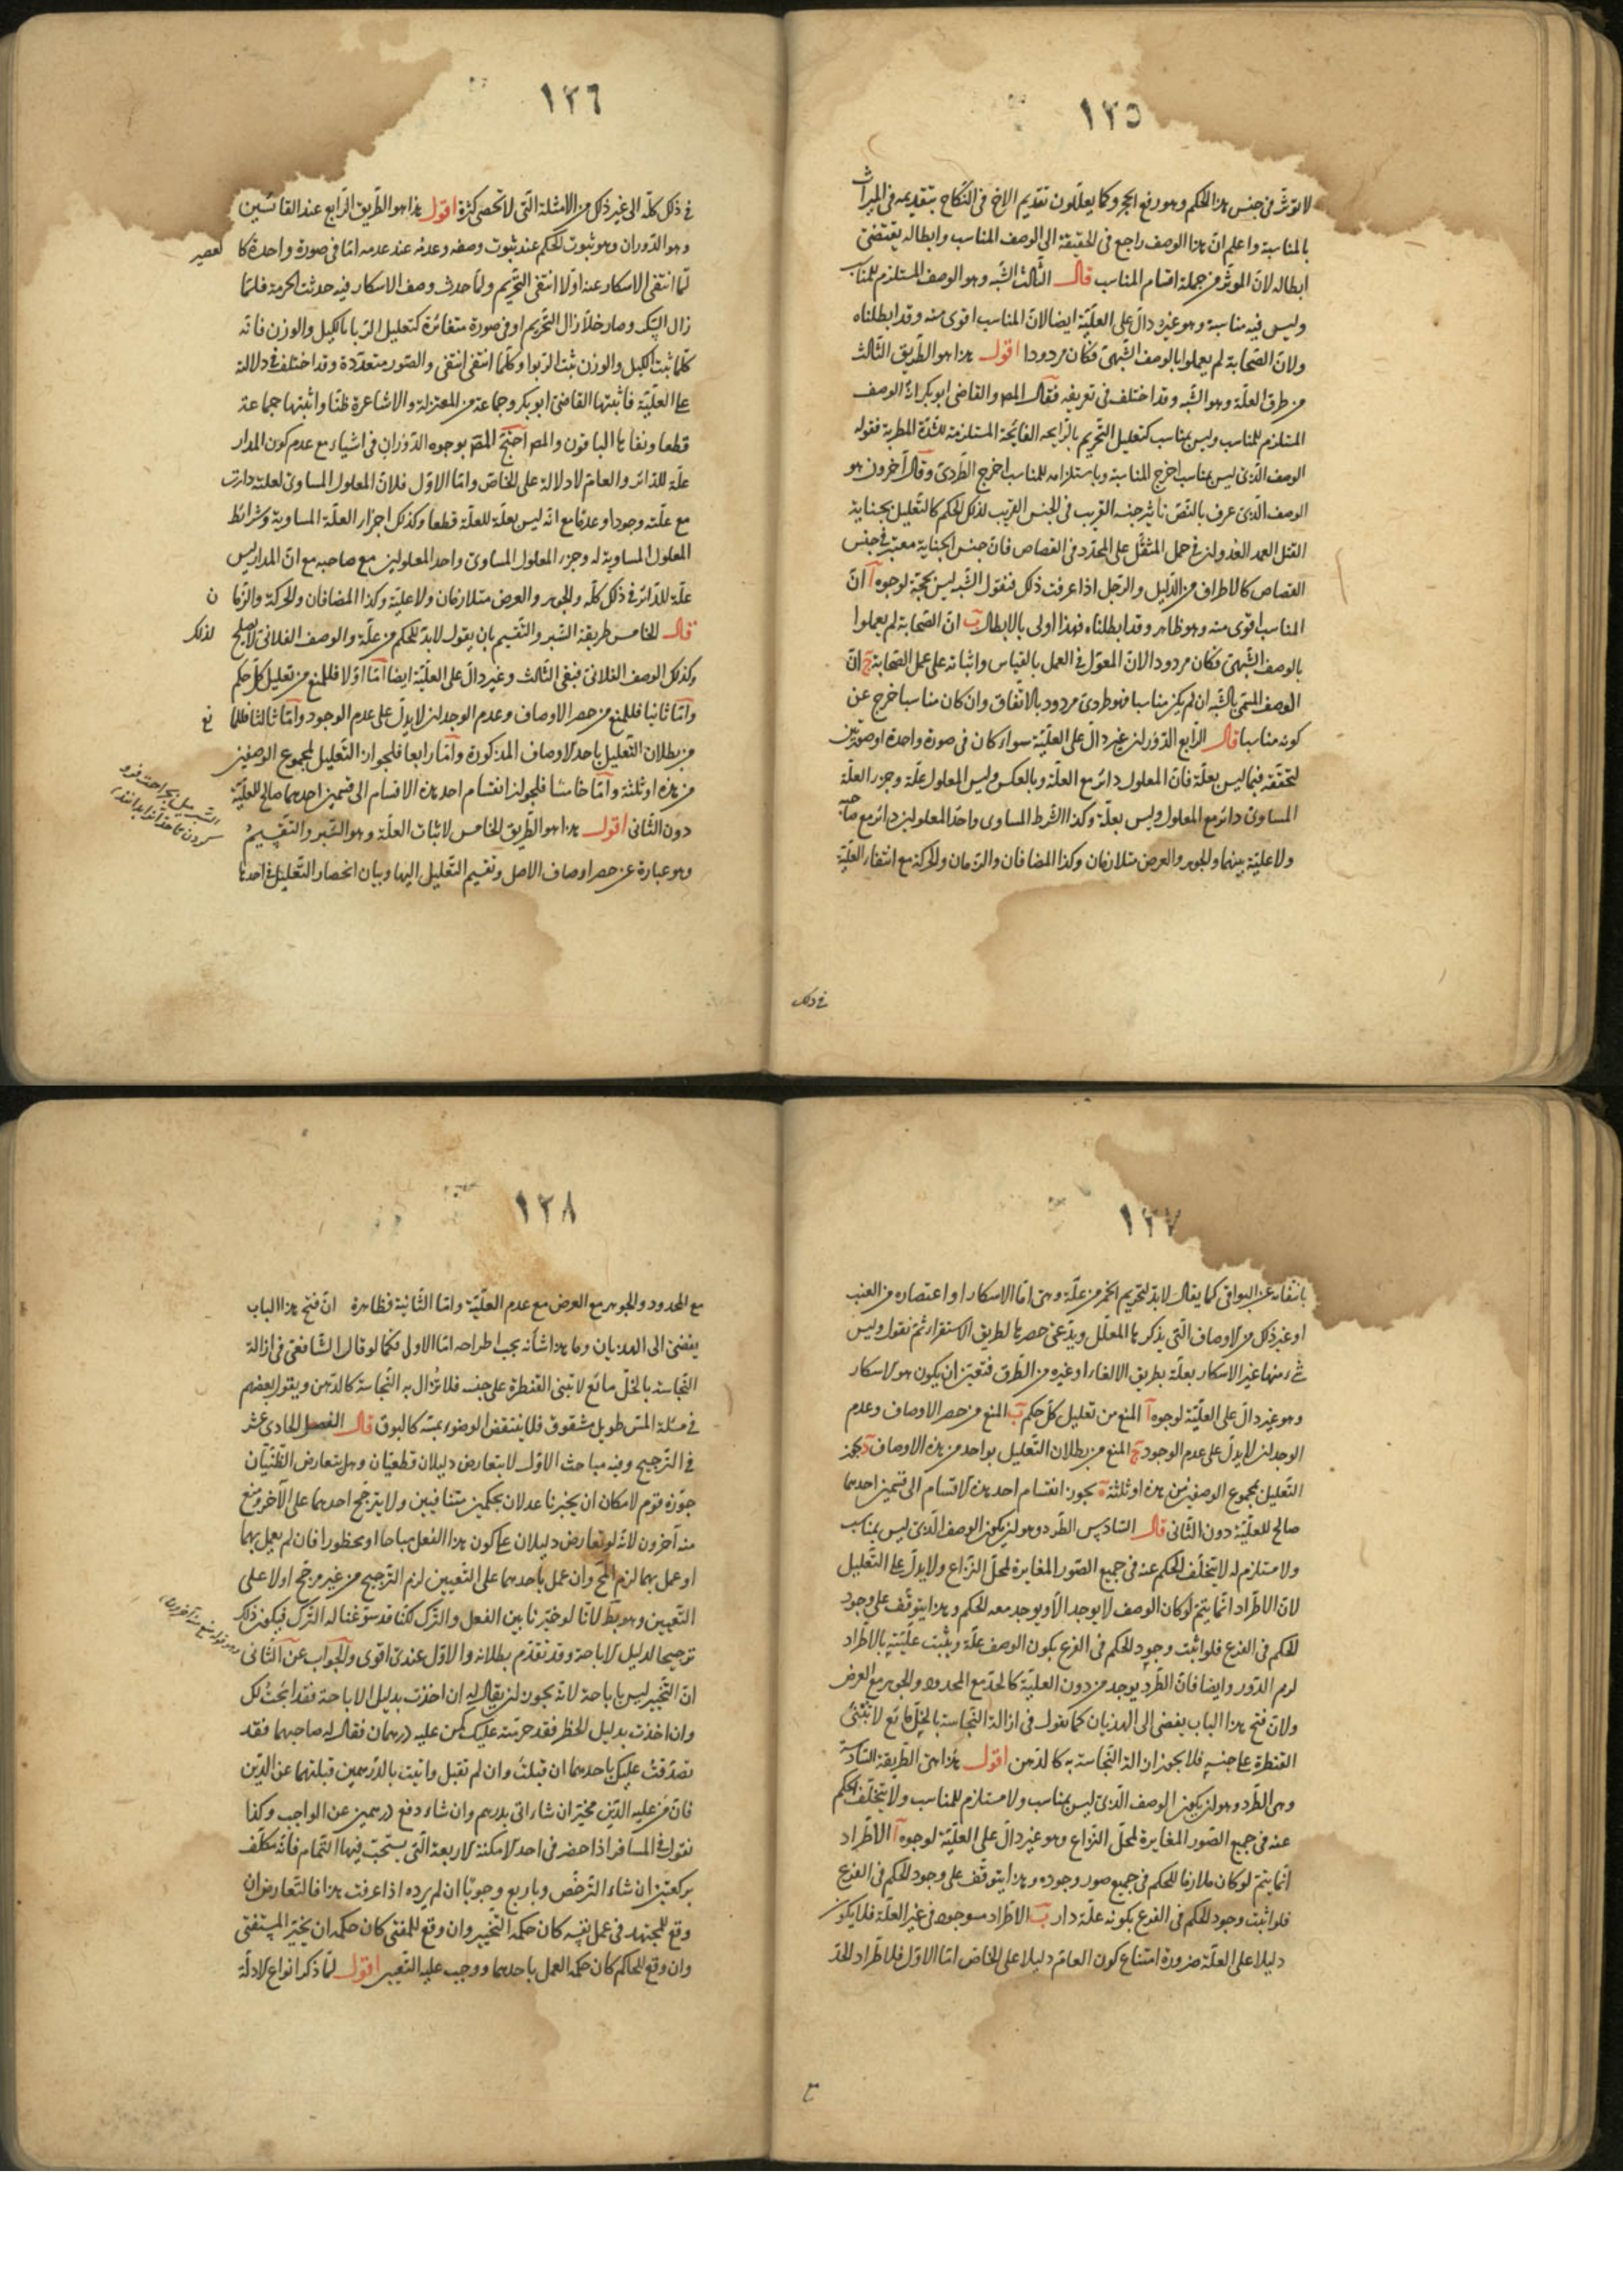 ١٢٥
لا تؤثر فى جنس هذا الحكم وهو رفع الحجر وكما يعللون تقديم الاخ فى النكاح بتقديمه فى الميراث
بالمناسبة واعلم ان هذا الوصف راجع فى الحقيقة الى الوصف المناسب وابطاله يقتضى
ابطاله لان المؤثر من جملة اقسام المناسب قال الثالث الشبه وهو الوصف المستلزم للمناسب
وليس فيه مناسبة وهو غير دال على العلية ايضا لان المناسب اقوى منه وقد ابطلناه
ولان الصحابة لم يعملوا بالوصف الشبهى فكان مردودا اقول هذا هو الطريق الثالث
من طرق العلة وهو الشبه وقد اختلف فى تعريفه فقال المصـ والقاضى ابو بكر انه الوصف
المستلزم للمناسب وليس بمناسب كتعليل التحريم بالرايحه الفايحة المستلزمة للشدة المطربة فقوله
الوصف الذى ليس بمناسب اخرج المناسبة وباستلزامه للمناسب اخرج الطردى وقال آخرون هو
الوصف الذى عرف بالنص تاثير جنسه القريب فى الجنس القريب لذلك الحكم كالتعليل بجناية
القتل العمد العدوان فى حمل المثقل على المحدد فى القصاص فان جنس الجناية معتبر فى جنس
القصاص كالاطراف من الدليل والرجل اذا عرفت ذلك فنقول الشبه ليس بحجة لوجوه آ ان
المناسب اقوى منه وهو ظاهر وقد ابطلناه فهذا اولى بالابطال ب ان الصحابة لم يعملوا
بالوصف الشبهى فكان مردودا لان المعول فى العمل بالقياس واثباته على عمل الصحابة ج ان
الوصف المسمى بالشبه ان لم يكن مناسبا فهو طردى مردود بالاتفاق وان كان مناسبا خرج عن
كونه مناسبا قال الرابع الدوران غير دال على العلية سواء كان فى صورة واحدة او صورتين
لتحققه فيما ليس بعلة فان المعلول دائر مع العلة وبالعكس وليس المعلول علة وجزء العلة
المساوى دائر مع المعلول وليس بعلة وكذا الشرط المساوى واحد المعلولين دائر مع صاحبه
ولا علية بينهما والجوهر والعرض متلازمان وكذا المضافان والزمان والحركة مع انتفاء العلية
فى ذلك
١٢٦
فى ذلك كله الى غير ذلك من الامثلة التى لا تحصى كثرة اقول هذا هو الطريق الرابع عند القائسين
وهو الدوران وهو ثبوت الحكم عند ثبوت وصفه وعدمه عند عدمه اما فى صورة واحدة كا لعصير
لما انتفى الاسكار عنه اولا انتفى التحريم ولما حدث وصف الاسكار فيه حدثت الحرمة فلما
زال السكر وصار خلا زال التحريم او فى صورة متغائرة كتعليل الربا بالكيل والوزن فانه
كلما ثبت الكيل والوزن ثبت الربوا وكلما انتفى انتفى والصور متعددة وقد اختلف فى دلالة
على العلية فاثبتها القاضى ابو بكر وجماعة من المعتزلة والاشاعرة ظنا واثبتها جماعة
قطعا ونفاها الباقون والمصـ احتج المصـ بوجوه الدوران فى اشياء مع عدم كون المدار
علة للدائر والعام لا دلالة على الخاص واما الاول فلان المعلول المساوى لعلته دارت
مع علته وجودا وعدما مع انه ليس بعلة للعلة قطعا وكذلك اجزاء العلة المساوية وشرائط
المعلول المساوية له وجزء المعلول المساوى واحد المعلولين مع صاحبه مع ان المدار ليس
علة للدائر فى ذلك كله والجوهر والعرض متلازمان ولا علية وكذا المضافان والحركة والزما ن
قال الخامس طريقة السبر والتقسيم بان يقول لابد للحكم من علة والوصف الفلانى لا يصلح لذلك
وكذلك الوصف الفلانى فبقى الثالث وغير دال على العلية ايضا اما اولا فللمنع من تعليل كل حكم
واما ثانيا فللمنع من حصر الاوصاف وعدم الوجدان لا يدل على عدم الوجود واما ثالثا فللما نع
من بطلان التعليل باحد الاوصاف المذكورة واما رابعا فلجواز التعليل لمجموع الوصفين
من هذه او ثلثة واما خامسا فلجواز انقسام احد هذه الاقسام الى قسمين احدهما صالح للعلية
دون الثانى اقول هذا هو الطريق الخامس لاثبات العلة وهو السبر والتقسيم
وهو عبارة عن حصر اوصاف الاصل وتقسيم التعليل اليها وبيان انحصار التعليل فى احدها
١٢٧
بانتفائه عن البواقى كما يقال لابد لتحريم الخمر من علة وهى اما الاسكار او اعتصاره من العنب
او غير ذلك من الاوصاف التى يذكرها المعلل ويدعى حصرها لطريق الاستقراء ثم نقول وليس
شئ منها غير الاسكار بعلة بطريق الالغاء او غيره من الطرق فتعين ان يكون هو الاسكار
وهو غير دال على العلية لوجوه آ المنع من تعليل كل حكم ب المنع من حصر الاوصاف وعدم
الوجدان لا يدل على عدم الوجود ج المنع من بطلان التعليل بواحد من هذه الاوصاف د يجوز
التعليل بمجموع الوصفين من هذه او ثلثة ه يجوز انقسام احد هذه الاقسام الى قسمين احدهما
صالح للعلية دون الثانى قال السادس الطرد وهو ان يكون الوصف الذى ليس بمناسب
ولا مستلزم له لا يتخلف الحكم عنه فى جميع الصور المغايرة لمحل النزاع ولا يدل على التعليل
لان الاطراد انما يتم لو كان الوصف لا يوجد الا ويوجد معه الحكم وهذا يتوقف على وجود
الحكم فى الفرع فلو اثبت وجود الحكم فى الفرع بكون الوصف علة ويثبت عليته بالاطراد
لزم الدور وايضا فان الطرد يوجد من دون العلية كالحد مع المحدود والجوهر مع العرض
ولان فتح هذا الباب يفضى الى الهذيان كما نقول فى ازالة النجاسة بالخل مائع لا تبتنى
القنطرة على جنسه فلا يجوز ازالة النجاسة به كالدهن اقول هذا هى الطريقة السادسة
وهى الطرد وهو ان يكون الوصف الذى ليس بمناسب ولا مستلزم للمناسب ولا يتخلف الحكم
عنه فى جميع الصور المغايرة لمحل النزاع وهو غير دال على العلية لوجوه آ الاطراد
انما يتم لو كان ملازما للحكم فى جميع صور وجوده وهذا يتوقف على وجود الحكم فى الفرع
فلو اثبت وجود الحكم فى الفرع بكونه علة دار ب الاطراد موجود فى غير العلة فلا يكون
دليلا على العلة ضرورة امتناع كون العام دليلا على الخاص اما الاول فلاطراد الحد
مع
١٢٨
مع المحدود والجوهر مع العرض مع عدم العلية واما الثانية فظاهرة ان فتح هذا الباب
يفضى الى الهذيان وما هذا شأنه يجب اطراحه اما الاولى فكما لو قال الشافعى فى ازالة
النجاسة بالخل مائع لا تبنى القنطرة على جنسه فلا تزال به النجاسة كالدهن ويقول بعضهم
فى مسئلة المس طويل مشقوق فلا ينتقض الوضوء بمسه كالبوق قال الفصل الحادى عشر
فى الترجيح وفيه مباحث الاول لا يتعارض دليلان قطعيان وهل يتعارض الظنيان
جوزه قوم لامكان ان يخبرنا عدلان بحكمين متنافيين ولا يترجح احدهما على الآخر ومنع
منه آخرون لانه لو تعارض دليلان على كون هذا الفعل مباحا او محظورا فان لم يعمل بهما
او عمل بهما لزم المح وان عمل باحدهما على التعيين لزم الترجيح من غير مرجح اولا على
التعيين وهو بط لانا لو خيرنا بين الفعل والترك لكنا قد سوغنا له الترك فيكون ذلك
ترجيحا لدليل الاباحة وقد تقدم بطلانه والاول عندى اقوى والجواب عن الثانى
ان التخيير ليس باباحة لانه يجوز ان يقال له ان اخذت بدليل الاباحة فقد ابحت لك
وان اخذت بدليل الحظر فقد حرمته عليك كمن عليه درهمان فقال له صاحبهما فقد
تصدقت عليك باحدهما ان قبلت وان لم تقبل واتيت بالدرهمين قبلتهما عن الدين
فان من عليه الدين مخير ان شاء اتى بدرهم وان شاء دفع درهمين عن الواجب وكذا
نقول فى المسافر اذا حضر فى احد الامكنة الاربعة التى يستحب فيها التمام فانه مكلف
بركعتين ان شاء الترخص وباربع وجوبا ان لم يرده اذا عرفت هذا فالتعارض ان
وقع للمجتهد فى عمل نفسه كان حكمه التخيير وان وقع للمفتى كان حكمه ان يخير المستفتى
وان وقع للحاكم كان حكمه العمل باحدهما ووجب عليه التعيين اقول لما ذكر انواع الادلة